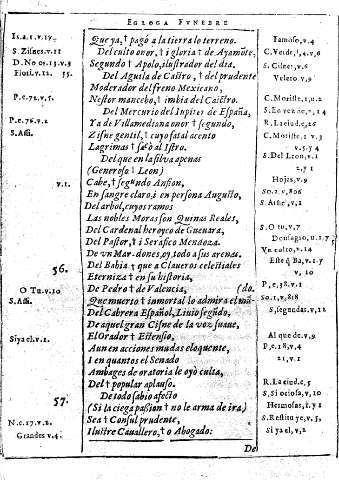 EGLOGA FVNEBRE
Que ya, † pagó a la tierra lo terreno.
Del culto onor, † i gloria † de Ayamõte,
Segundo † Apolo, ilustrador del dia.
Del Aguila de Castro, † del prudente
Moderador del freno Mexicano,
Nestor mancebo, † imbia del Caistro.
Del Mercurio del Jupiter de España,
Ya de Villamediana onor † segundo,
Zisne gentil, † cuyo fatal acento
Lagrimas † sacò al Istro.
Del que en la silva apenas
(Generosa † Leon)
Cabe, † segundo Anfion,
En sangre claro, i en persona Augusto,
Del arbol, cuyos ramos
Las nobles Moras son Quinas Reales,
Del Cardenal heroyco de Guevara,
Del Pastor, † i Serafico Mendoza.
De un Mar-dones, oy, todo a sus arenas.
Del Bahia † que a Claveros celestiales
Eterniza † en su historia,
De Pedro † de Valencia, (do.
Que muerto † inmortal lo admira el mũ-
Del Cabrera Español, Livio segũdo.
De aquel gran Cisne de la voz suave,
El Orador † Estensio,
Aun en acciones mudas eloquente,
I en quantos el Senado
Ambages de oratoria le oyò culta,
Del † popular aplauso.
De todo sabio afecto
(Si la ciega passion † no le arma de ira)
Sea † Consul prudente,
Ilustre Cavallero, † o Abogado:
De
Is. a. 1. v. 17.
S. Zisnes. v. 11
P. c. 72. v. 5.
P. c. 76. v. 2
S. Assi.
v. 1.
56.
O Tu. v. 10
S. Assi.
Si ya el. v. 1
57.
N. c. 17. v. 2.
Grandes v. 4.
Famoso, v. 4
C. Verde, †, 4. v. 6
S. Cisne, v. 6
Velero. v. 9
C. Moriste, 1, u. 2
C. Moriste, 1 v. 3
v. 5 y 4
S. Del Leon, v. 1
2, 7 1
Hojas, v. 9
So. 2. v. 806
S. O tu, v. 7
Vn culto, v. 14
Este q̃ Ba, v. 1. 7
v, 10
P, c, 38, v. 1
So. 1, v, 818
S, segundas. v, 12
Al que de. v. 9
P. c. 18, v. 4
21, v. 1
R. La ciud. c, 5
S, Si ociosa, v, 10
Hermosas, i. y 2
S. Restituye v, 5,
Si ya el, v, 2